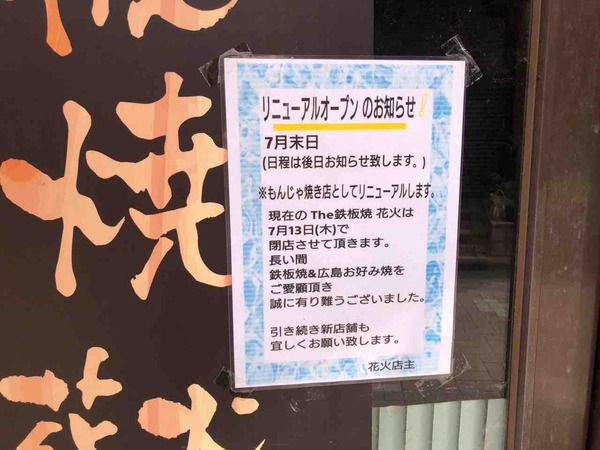 焼
リニューアルオープン のお知らせ！
7月末日
(日程は後日お知らせ致します。)
※もんじゃ焼き店としてリニューアルします。
現在の The鉄板焼 花火は
7月13日(木)で
閉店させて頂きます。
長い間
鉄板焼&広島お好み焼を
ご愛顧頂き
誠に有り難うございました。
引き続き新店舗も
宜しくお願い致します。
花火店主